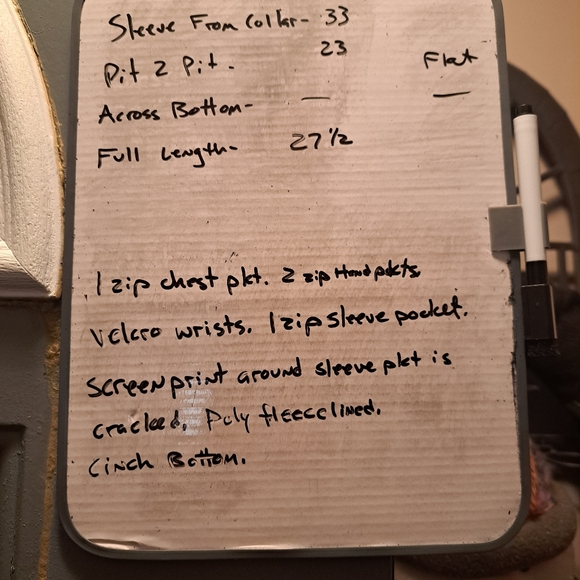 Sleeve From Collar- 33
Pit 2 Pit. 23
Flat
Across Bottom- — —
Full Length- 27 1/2
1 zip chest pkt. 2 zip Hand pkts
Velcro wrists. 1 zip sleeve pocket.
screenprint around sleeve pkt is
cracked. Poly fleece lined.
Cinch Bottom.